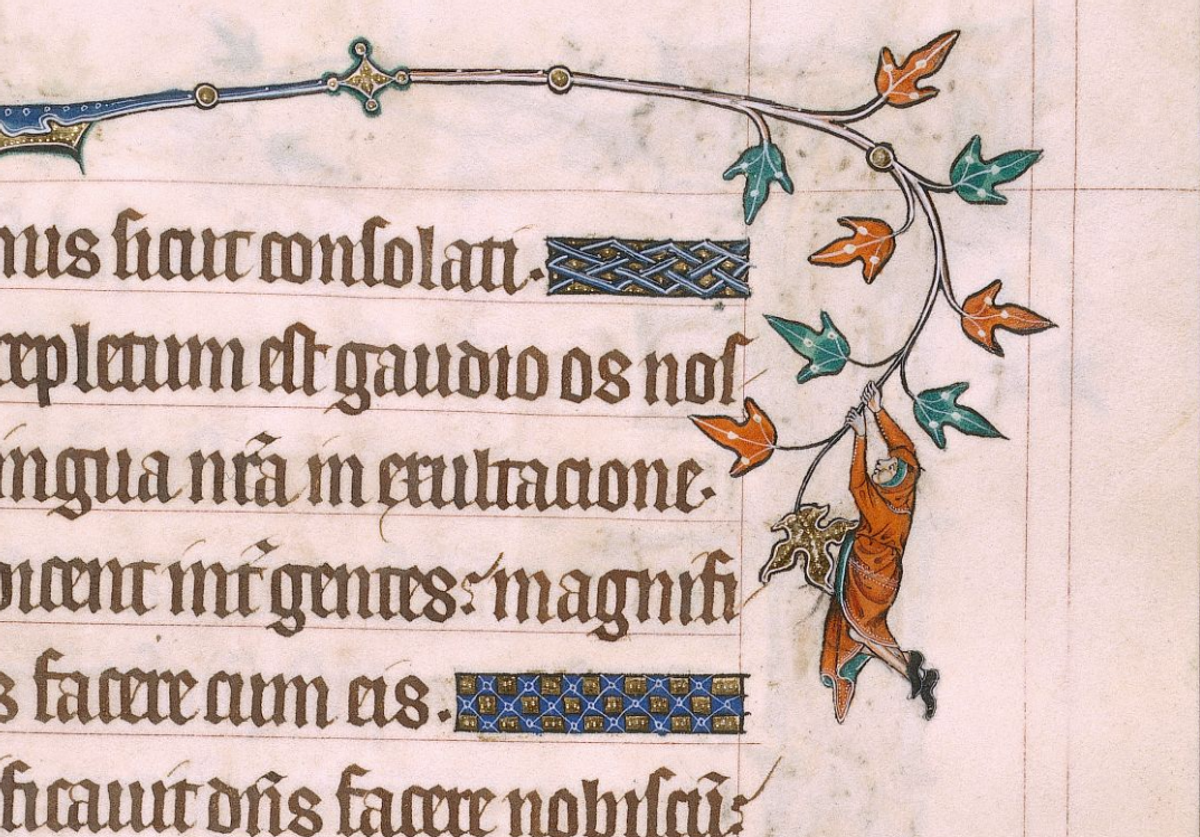 mus sicut consolati.
repletum est gaudio os nos
lingua nr̃a in exultacione.
dicent int̃ gentes: magnifi
s facere cum eis.
ficauit dñs facere nobiscũ: